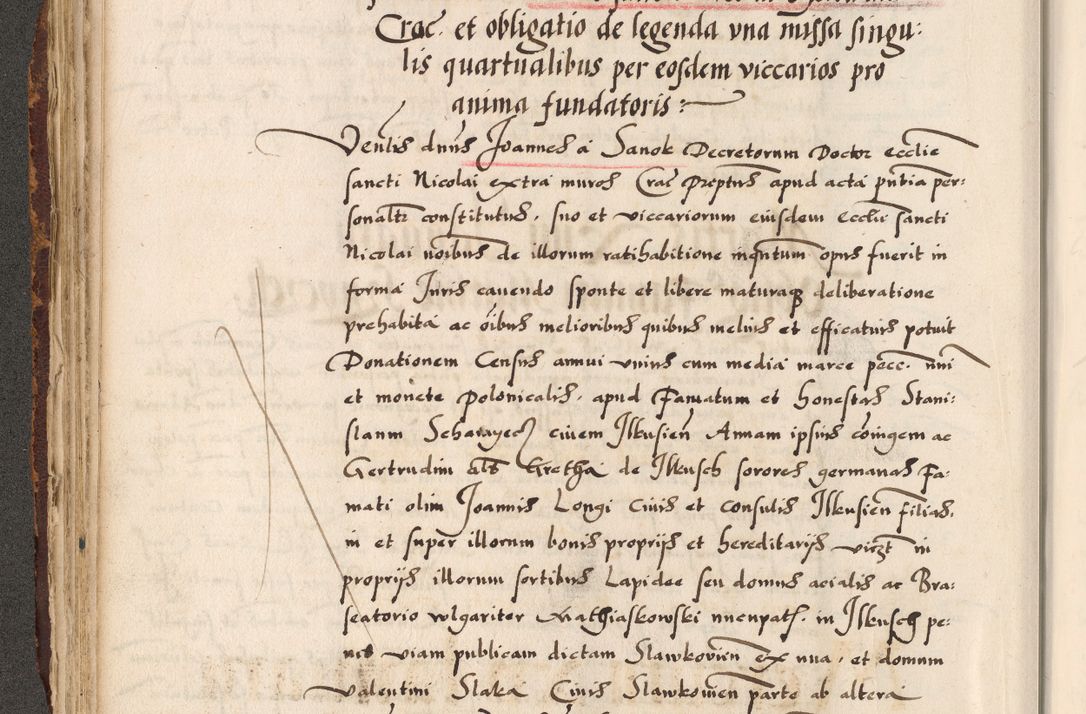 Crac. et obligatio de legenda vna missa singu:
lis quartualibus per eosdem viccarios pro
anima fundatoris:
Venlis dnus Joannes a Sanok Decretorum Doctor Ecclie
sancti Nicolai extra muros Crac Preptus apud acta pntia per:
sonaltr constitutus, suo et viccariorum eiusdem Ecclie sancti
Nicolai noibus de illorum ratihabitione inquntum opus fuerit in
forma Juris cauendo sponte et libere maturaq deliberatione
prehabita ac oibus melioribus quibus melius et efficatius potuit
Donationem Census annui vnius cum media marce pecc. nri
et monete Polonicalis, apud Famatum et honestas Stani:
slaum ciuem Jlkusien Annam ipsius coingem ac
Gertrudim als Gretha de Jlkusch sorores germanas Fa:
mati olim Joannis Longi Ciuis et Consulis Jlkusien filias,
in et super illorum bonis proprijs et hereditarijs vizt in
proprijs illorum sortibus Lapidee seu domus acialis ac Bra:
seatorio vlgariter Mathiaskowski nuncpat. in Jlkusch pe:
nes viam publicam dictam Slawkowien ex vna, et domum
Valentini Slaka Ciuis Slawkowien parte ab altera